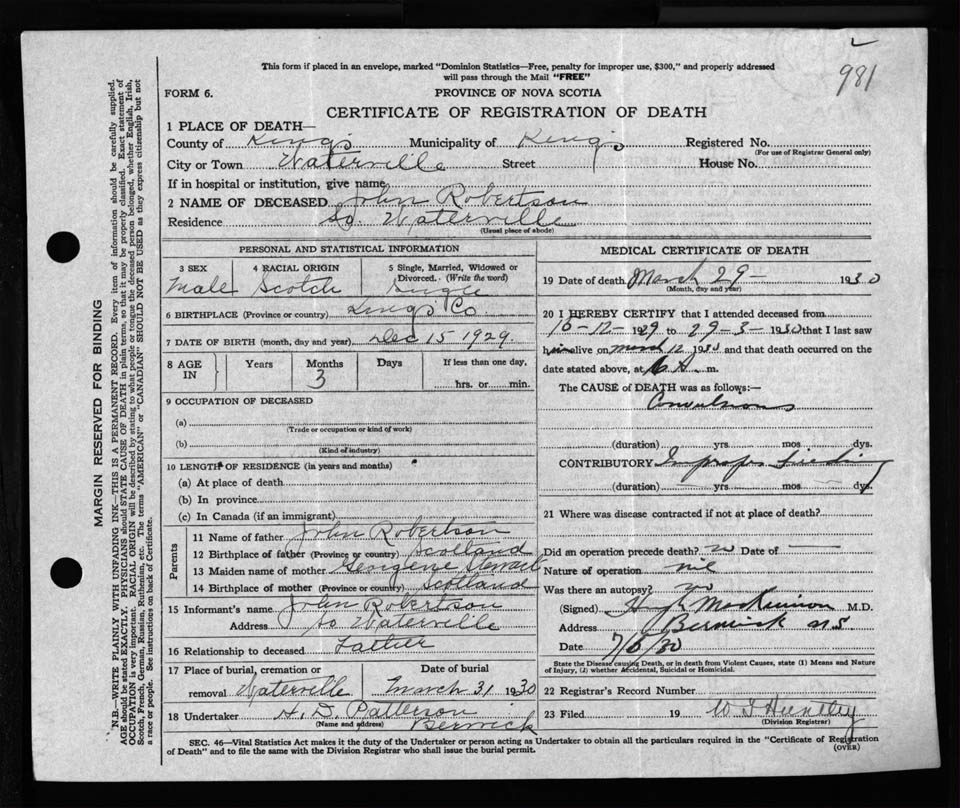 981
This form if placed in an envelope, marked "Dominion Statistics—Free, penalty for improper use, $300," and properly addressed
will pass through the Mail "FREE"
FORM 6.
PROVINCE OF NOVA SCOTIA
CERTIFICATE OF REGISTRATION OF DEATH
1 PLACE OF DEATH—
County of King's Municipality of King's Registered No.
(For use of Registrar General only)
City or Town Waterville Street House No.
If in hospital or institution, give name
2 NAME OF DECEASED John Robertson
Residence So. Waterville
(Usual place of abode)
PERSONAL AND STATISTICAL INFORMATION
3 SEX 4 RACIAL ORIGIN 5 Single, Married, Widowed or
Divorced. (Write the word)
Male Scotch Single
6 BIRTHPLACE (Province or country) King's Co
7 DATE OF BIRTH (month, day and year) Dec 15 1929
8 AGE IN Years Months Days If less than one day,
3 hrs. or min.
9 OCCUPATION OF DECEASED
(a)
(Trade or occupation or kind of work)
(b)
(Kind of industry)
10 LENGTH OF RESIDENCE (in years and months)
(a) At place of death
(b) In province
(c) In Canada (if an immigrant)
Parents
11 Name of father John Robertson
12 Birthplace of father (Province or country) Scotland
13 Maiden name of mother
14 Birthplace of mother (Province or country) Scotland
15 Informant's name John Robertson
Address So Waterville
16 Relationship to deceased Father
17 Place of burial, cremation or Date of burial
removal Waterville March 31 1930
18 Undertaker H. D. Patterson
(Name and address) Berwick
MEDICAL CERTIFICATE OF DEATH
19 Date of death March 29 — 1930
(Month, day and year)
20 I HEREBY CERTIFY that I attended deceased from
16-12-1929 to 29-3-1930 that I last saw
him alive on March 12 1930 and that death occurred on the
date stated above, at 6 A. m.
The CAUSE of DEATH was as follows:—
Convulsions
(duration) yrs mos dys.
CONTRIBUTORY Improper Feeding
(duration) yrs mos dys.
21 Where was disease contracted if not at place of death?
Did an operation precede death? no Date of —
Nature of operation nil
Was there an autopsy? no
(Signed) Hugh MacKinnon M.D.
Address Berwick N.S
Date 7/6/30
State the Disease causing Death, or in death from Violent Causes, state (1) Means and Nature
of Injury, (2) whether Accidental, Suicidal or Homicidal.
22 Registrar's Record Number
23 Filed 19 Huntley
(Division Registrar)
SEC. 46—Vital Statistics Act makes it the duty of the Undertaker or person acting as Undertaker to obtain all the particulars required in the "Certificate of Registration
of Death" and to file the same with the Division Registrar who shall issue the burial permit.
(OVER)
MARGIN RESERVED FOR BINDING
N.B.—WRITE PLAINLY WITH UNFADING INK—THIS IS A PERMANENT RECORD. Every item of information should be carefully supplied.
AGE should be stated EXACTLY. PHYSICIANS should STATE CAUSE OF DEATH in plain terms, so that it may be properly classified. Exact statement of
OCCUPATION is very important. RACIAL ORIGIN will be described by stating to what people or tongue the deceased person belonged, whether English, Irish,
Scotch, French, German, Russian, Ruthenian, etc. The terms "AMERICAN" or "CANADIAN" SHOULD NOT BE USED as they express citizenship but not
a race or people. See instructions on back of Certificate.